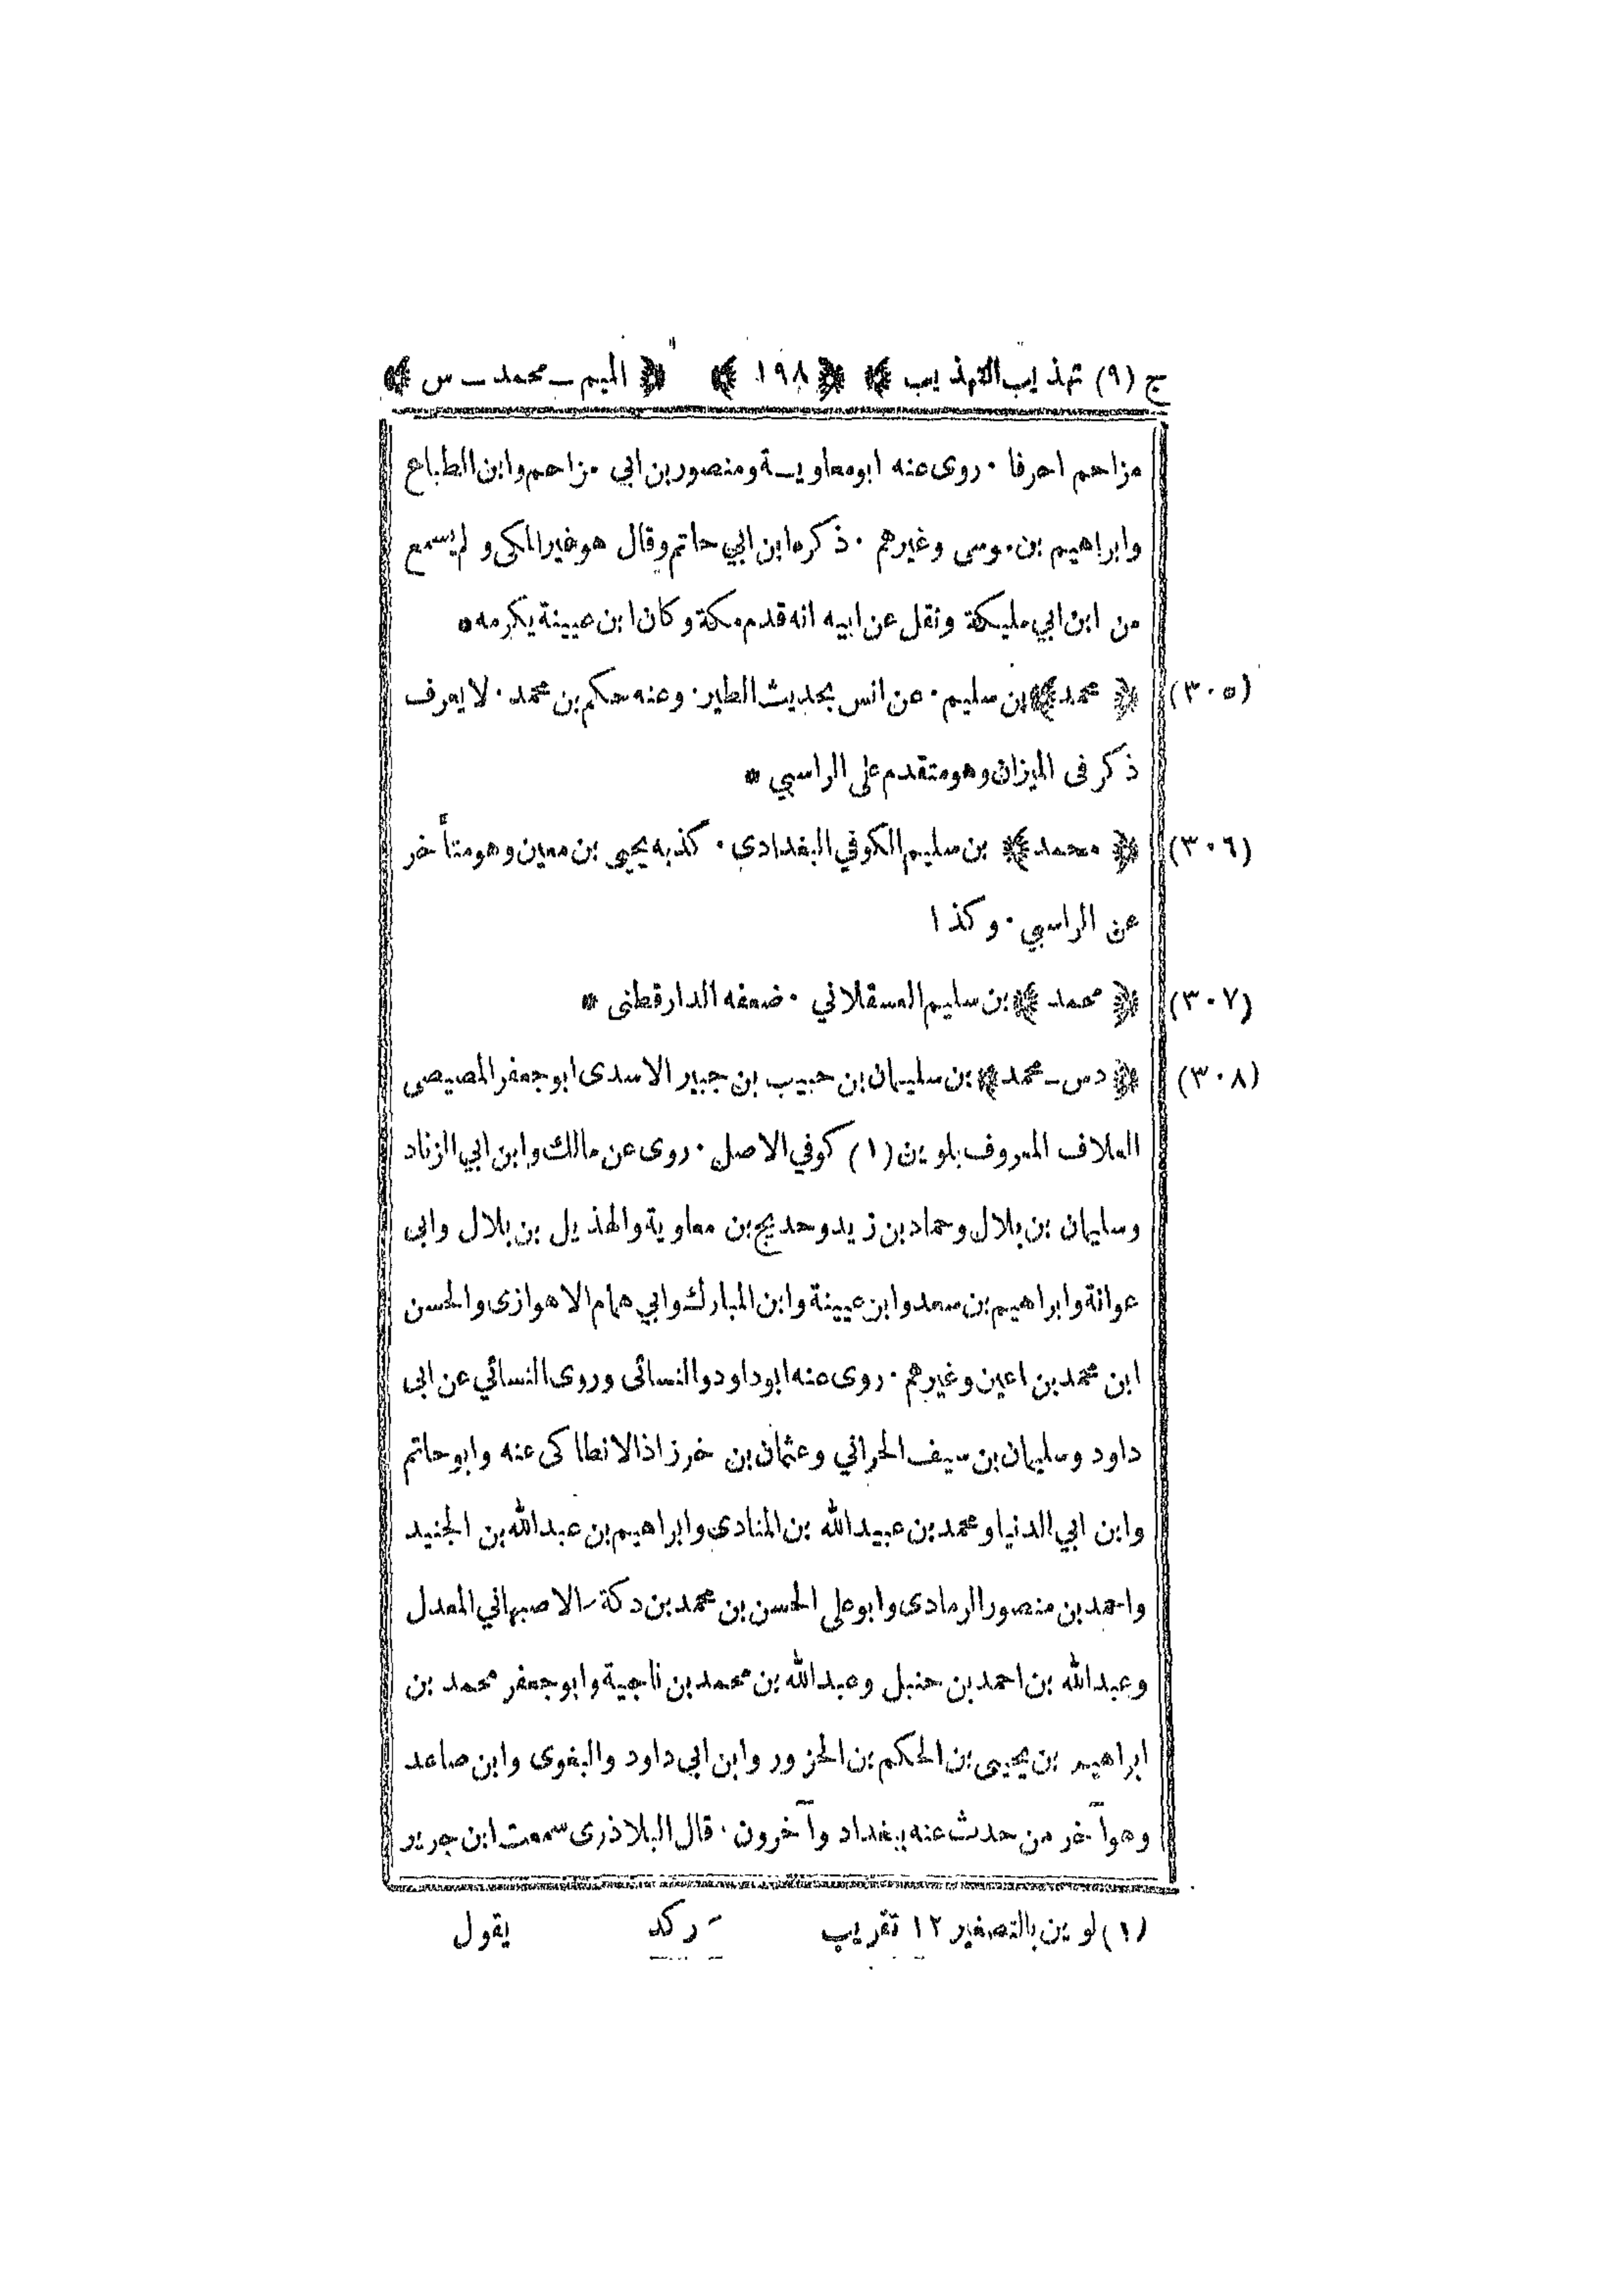 ج (٩) تهذيب التهذيب ﴾ ﴿ ١٩٨ ﴾ ﴿ الميم ـ محمد ـ س ﴾
مزاحم احرفا ۰ روى عنه ابو معاوية ومنصور بن ابي مزاحم وابن الطباع
وابراهيم بن موسى وغيرهم ۰ ذكره ابن ابي حاتم وقال هو غير المكى و لم يسمع
من ابن ابي مليكة ونقل عن ابيه انه قدم مكة وكان ابن عيينة يكرمه *
(٣٠٥) ﴿ محمد ﴾ بن سليم ۰ عن انس بحديث الطير ۰ وعنه حكم بن محمد ۰ لا يعرف
ذكر فى الميزان وهو متقدم على الراسبي *
(٣٠٦) ﴿ محمد ﴾ بن سليم الكوفي البغدادى ۰ كذبه يحيى بن معين وهو متأخر
عن الراسبي ۰ وكذا
(٣٠٧) ﴿ محمد ﴾ بن سليم العسقلاني ۰ ضعفه الدارقطنى *
(٣٠٨) ﴿ دس ـ محمد ﴾ بن سليمان بن حبيب بن جبير الاسدى ابو جعفر المصيصى
العلاف المعروف بلوين (١) كوفي الاصل ۰ روى عن مالك وابن ابي الزناد
وسليمان بن بلال وحماد بن زيد وحديج بن معاوية والهذيل بن بلال وابى
عوانة وابراهيم بن سعد وابن عيينة وابن المبارك وابي همام الاهوازى والحسن
ابن محمد بن اعين وغيرهم ۰ روى عنه ابو داود والنسائى وروى النسائي عن ابى
داود وسليمان بن سيف الحراني وعثمان بن خرزاذ الانطاكى عنه وابو حاتم
وابن ابي الدنيا ومحمد بن عبيد الله بن المنادى وابراهيم بن عبد الله بن الجنيد
واحمد بن منصور الرمادى وابو على الحسن بن محمد بن دكة الاصبهاني المعدل
وعبد الله بن احمد بن حنبل وعبد الله بن محمد بن ناجية وابو جعفر محمد بن
ابراهيم بن يحيى بن الحكم بن الحزور وابن ابي داود والبغوى وابن صاعد
وهو آخر من حدث عنه ببغداد وآخرون ۰ قال البلاذرى سمعت ابن جرير
(١) لوين بالتصغير ١٢ تقريب يقول